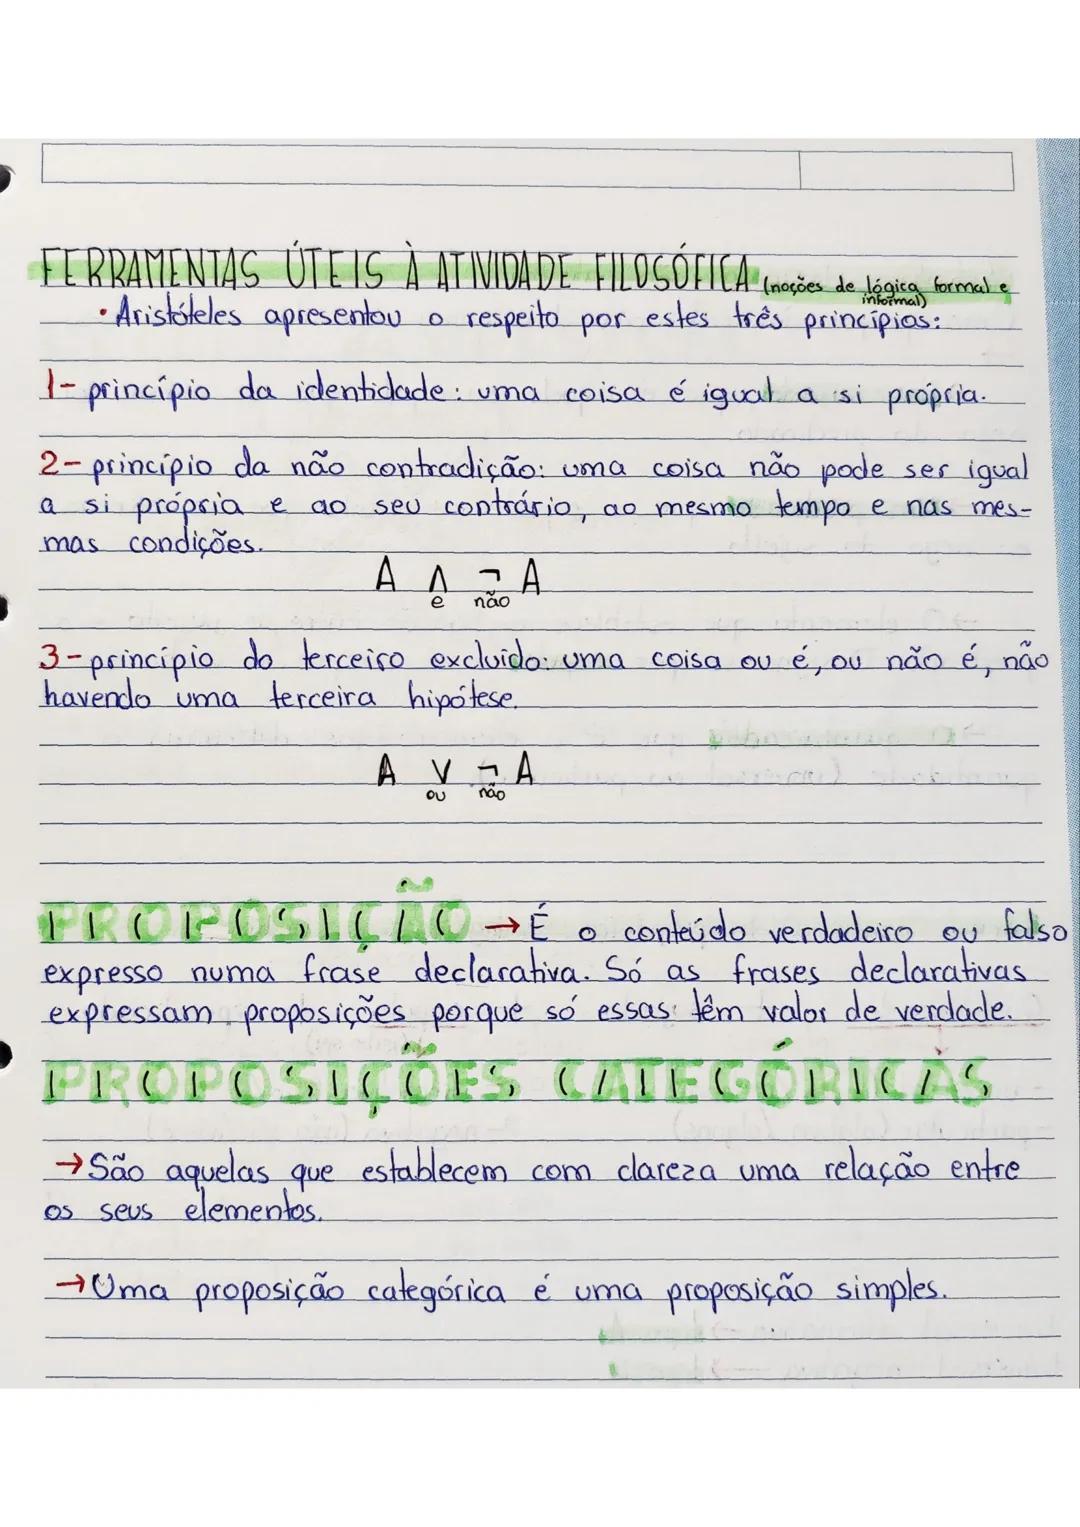 FERRAMENTAS ÚTEIS À ATIVIDADE FILOSÓFICA (noções de lógica formal e informal)
• Aristóteles apresentou o respeito por estes três princípios:
1- princípio da identidade: uma coisa é igual a si própria.
2- princípio da não contradição: uma coisa não pode ser igual
a si própria e ao seu contrário, ao mesmo tempo e nas mes-
mas condições.
A ∧ ¬ A
e não
3- princípio do terceiro excluído: uma coisa ou é, ou não é, não
havendo uma terceira hipótese.
A ∨ ¬ A
ou não
PROPOSIÇÃO → É o conteúdo verdadeiro ou falso
expresso numa frase declarativa. Só as frases declarativas
expressam proposições porque só essas têm valor de verdade.
PROPOSIÇÕES CATEGÓRICAS
→ São aquelas que establecem com clareza uma relação entre
os seus elementos.
→ Uma proposição categórica é uma proposição simples.